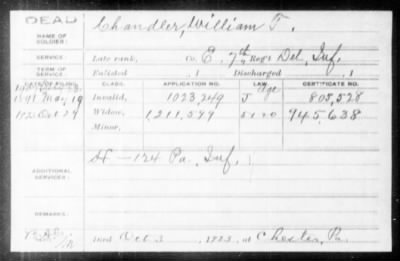 DEAD
NAME OF SOLDIER: Chandler, William T.
SERVICE: Late rank, Co. E, 7th Reg't Del. Inf.
TERM OF SERVICE: Enlisted , 1 Discharged , 1
DATE OF FILING. CLASS. APPLICATION NO. LAW. CERTIFICATE NO.
Age
1891 May 19 Invalid, 1023,249 J 805,528
Oct 29 Widow, 1,211,579 945,638
Minor,
ADDITIONAL SERVICES: 124 Pa. Inf.
REMARKS:
Died Oct 3 , 1923, at Chester, Pa.